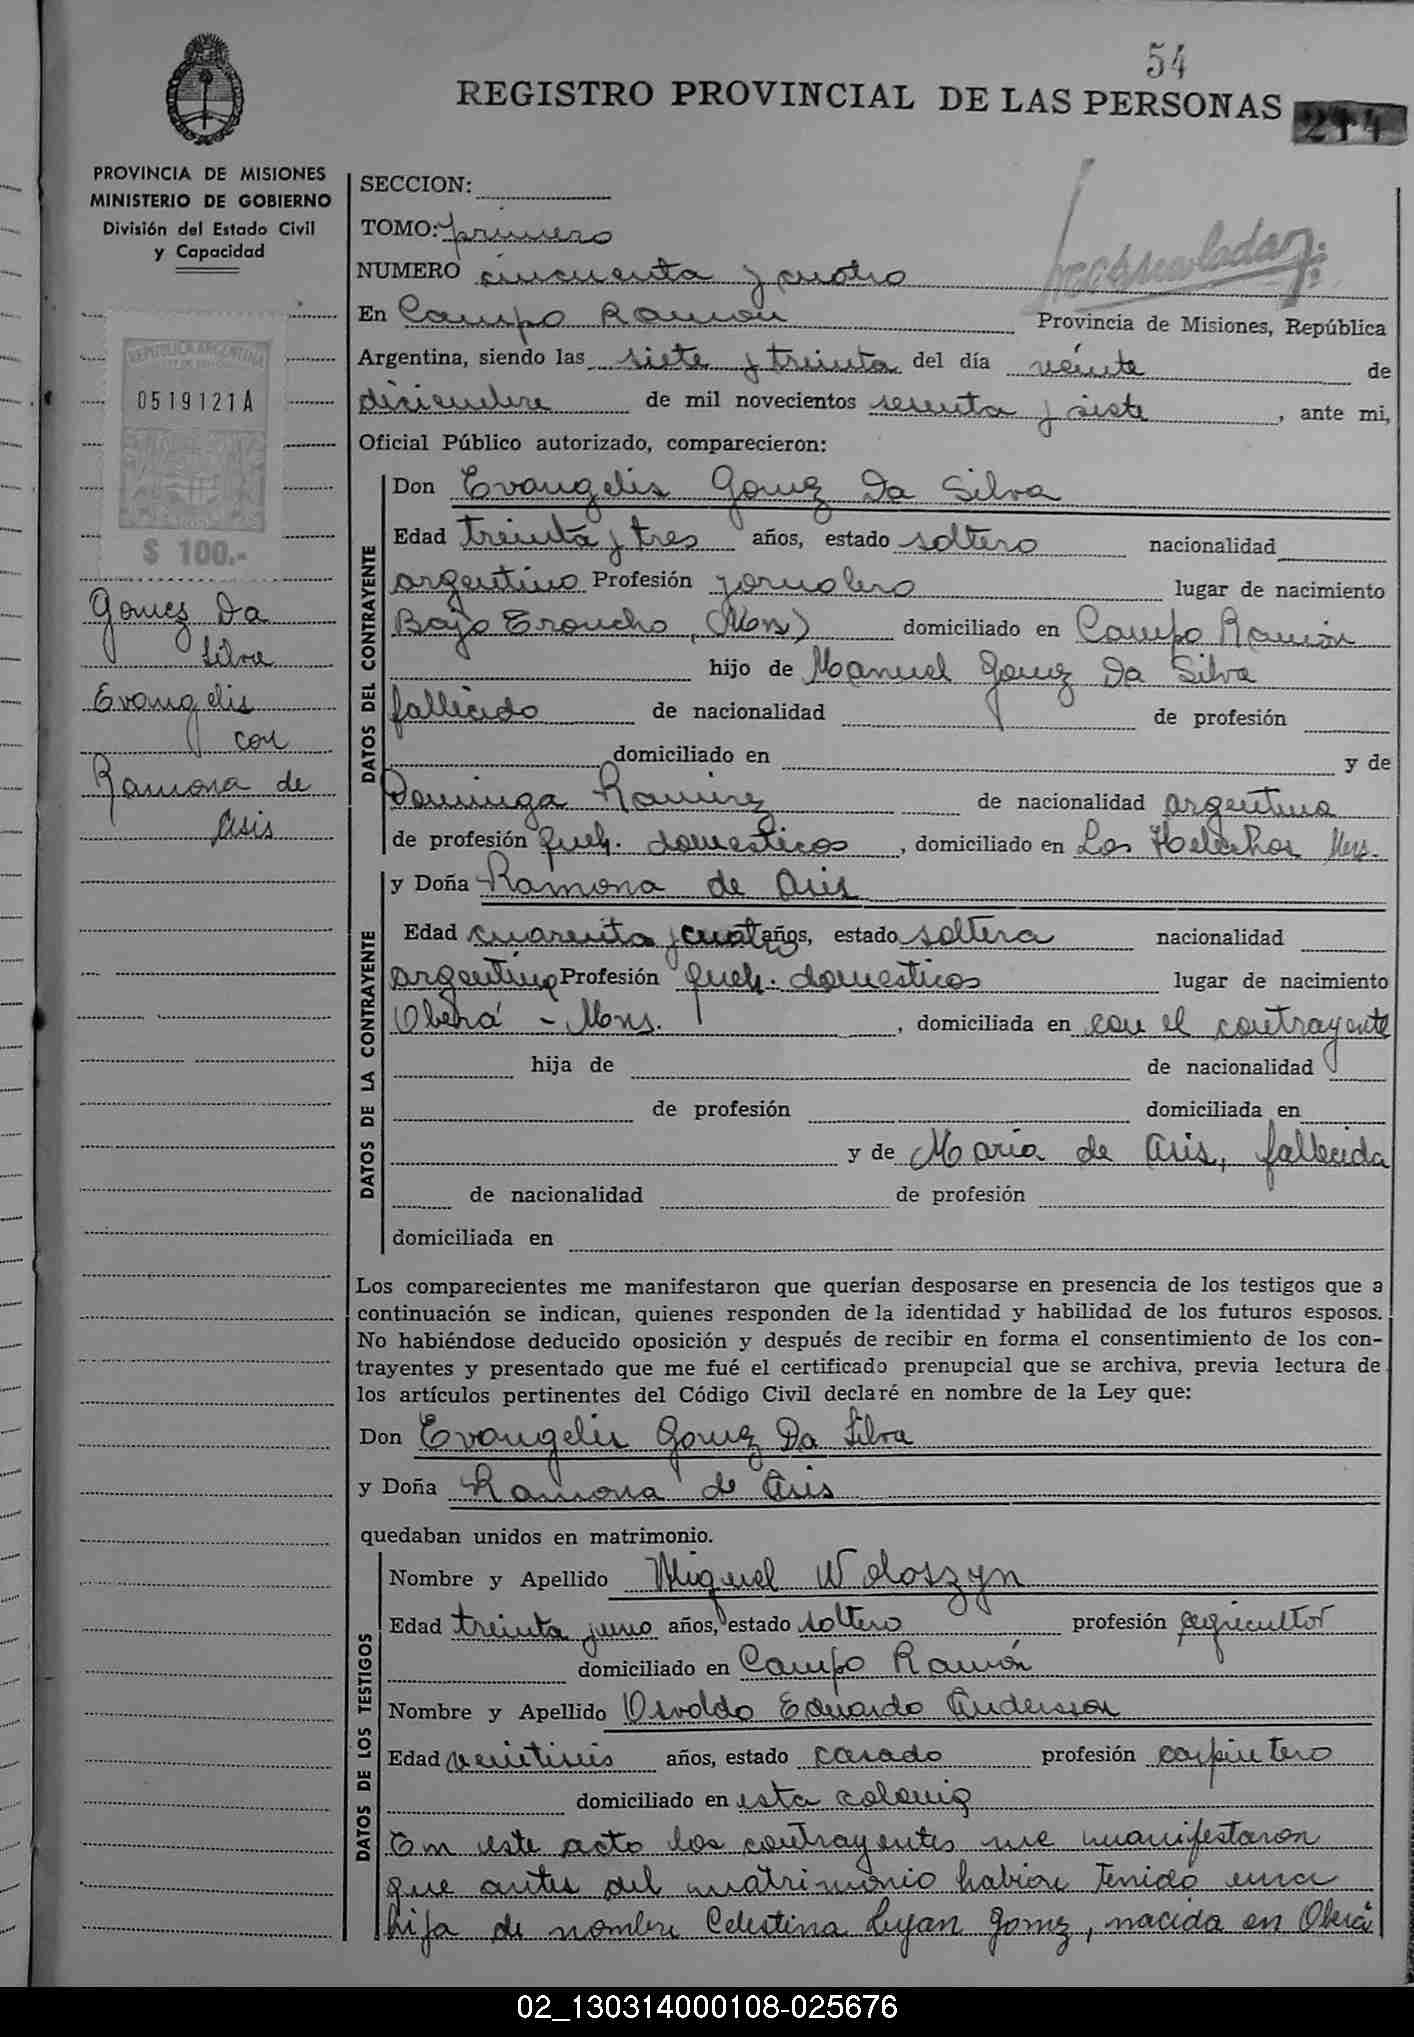 54
REGISTRO PROVINCIAL DE LAS PERSONAS
214
PROVINCIA DE MISIONES
MINISTERIO DE GOBIERNO
División del Estado Civil
y Capacidad
REPUBLICA ARGENTINA
0519121A
$ 100.-
Gomez Da
Silva
Evangelis
con
Ramona de
Asis
SECCION:
TOMO: primero
NUMERO cincuenta y cuatro
En Campo Ramon Provincia de Misiones, República
Argentina, siendo las siete y treinta del día veinte de
diciembre de mil novecientos sesenta y siete, ante mi,
Oficial Público autorizado, comparecieron:
DATOS DEL CONTRAYENTE
Don Evangelis Gomez Da Silva
Edad treinta y tres años, estado soltero nacionalidad
argentino Profesión jornalero lugar de nacimiento
Bajo Troncho, (Mns) domiciliado en Campo Ramón
hijo de Manuel Gomez Da Silva
fallecido de nacionalidad de profesión
domiciliado en y de
Dominga Ramirez de nacionalidad argentina
de profesión queh. domesticos, domiciliado en Los Helechos Mns.
DATOS DE LA CONTRAYENTE
y Doña Ramona de Asis
Edad cuarenta y cuatro años, estado soltera nacionalidad
argentina Profesión queh. domesticos lugar de nacimiento
Oberá - Mns. , domiciliada en con el contrayente
hija de de nacionalidad
de profesión domiciliada en
y de María de Asis, fallecida
de nacionalidad de profesión
domiciliada en
Los comparecientes me manifestaron que querían desposarse en presencia de los testigos que a
continuación se indican, quienes responden de la identidad y habilidad de los futuros esposos.
No habiéndose deducido oposición y después de recibir en forma el consentimiento de los con-
trayentes y presentado que me fué el certificado prenupcial que se archiva, previa lectura de
los artículos pertinentes del Código Civil declaré en nombre de la Ley que:
Don Evangelis Gomez Da Silva
y Doña Ramona de Asis
quedaban unidos en matrimonio.
DATOS DE LOS TESTIGOS
Nombre y Apellido Miguel Woloszyn
Edad treinta y uno años, estado soltero profesión agricultor
domiciliado en Campo Ramón
Nombre y Apellido Osvaldo Eduardo Andersson
Edad veintiseis años, estado casado profesión carpintero
domiciliado en esta colonia
En este acto los contrayentes me manifestaron
que antes del matrimonio habian tenido una
hija de nombre Celestina Luján Gomez, nacida en Oberá
02_130314000108-025676